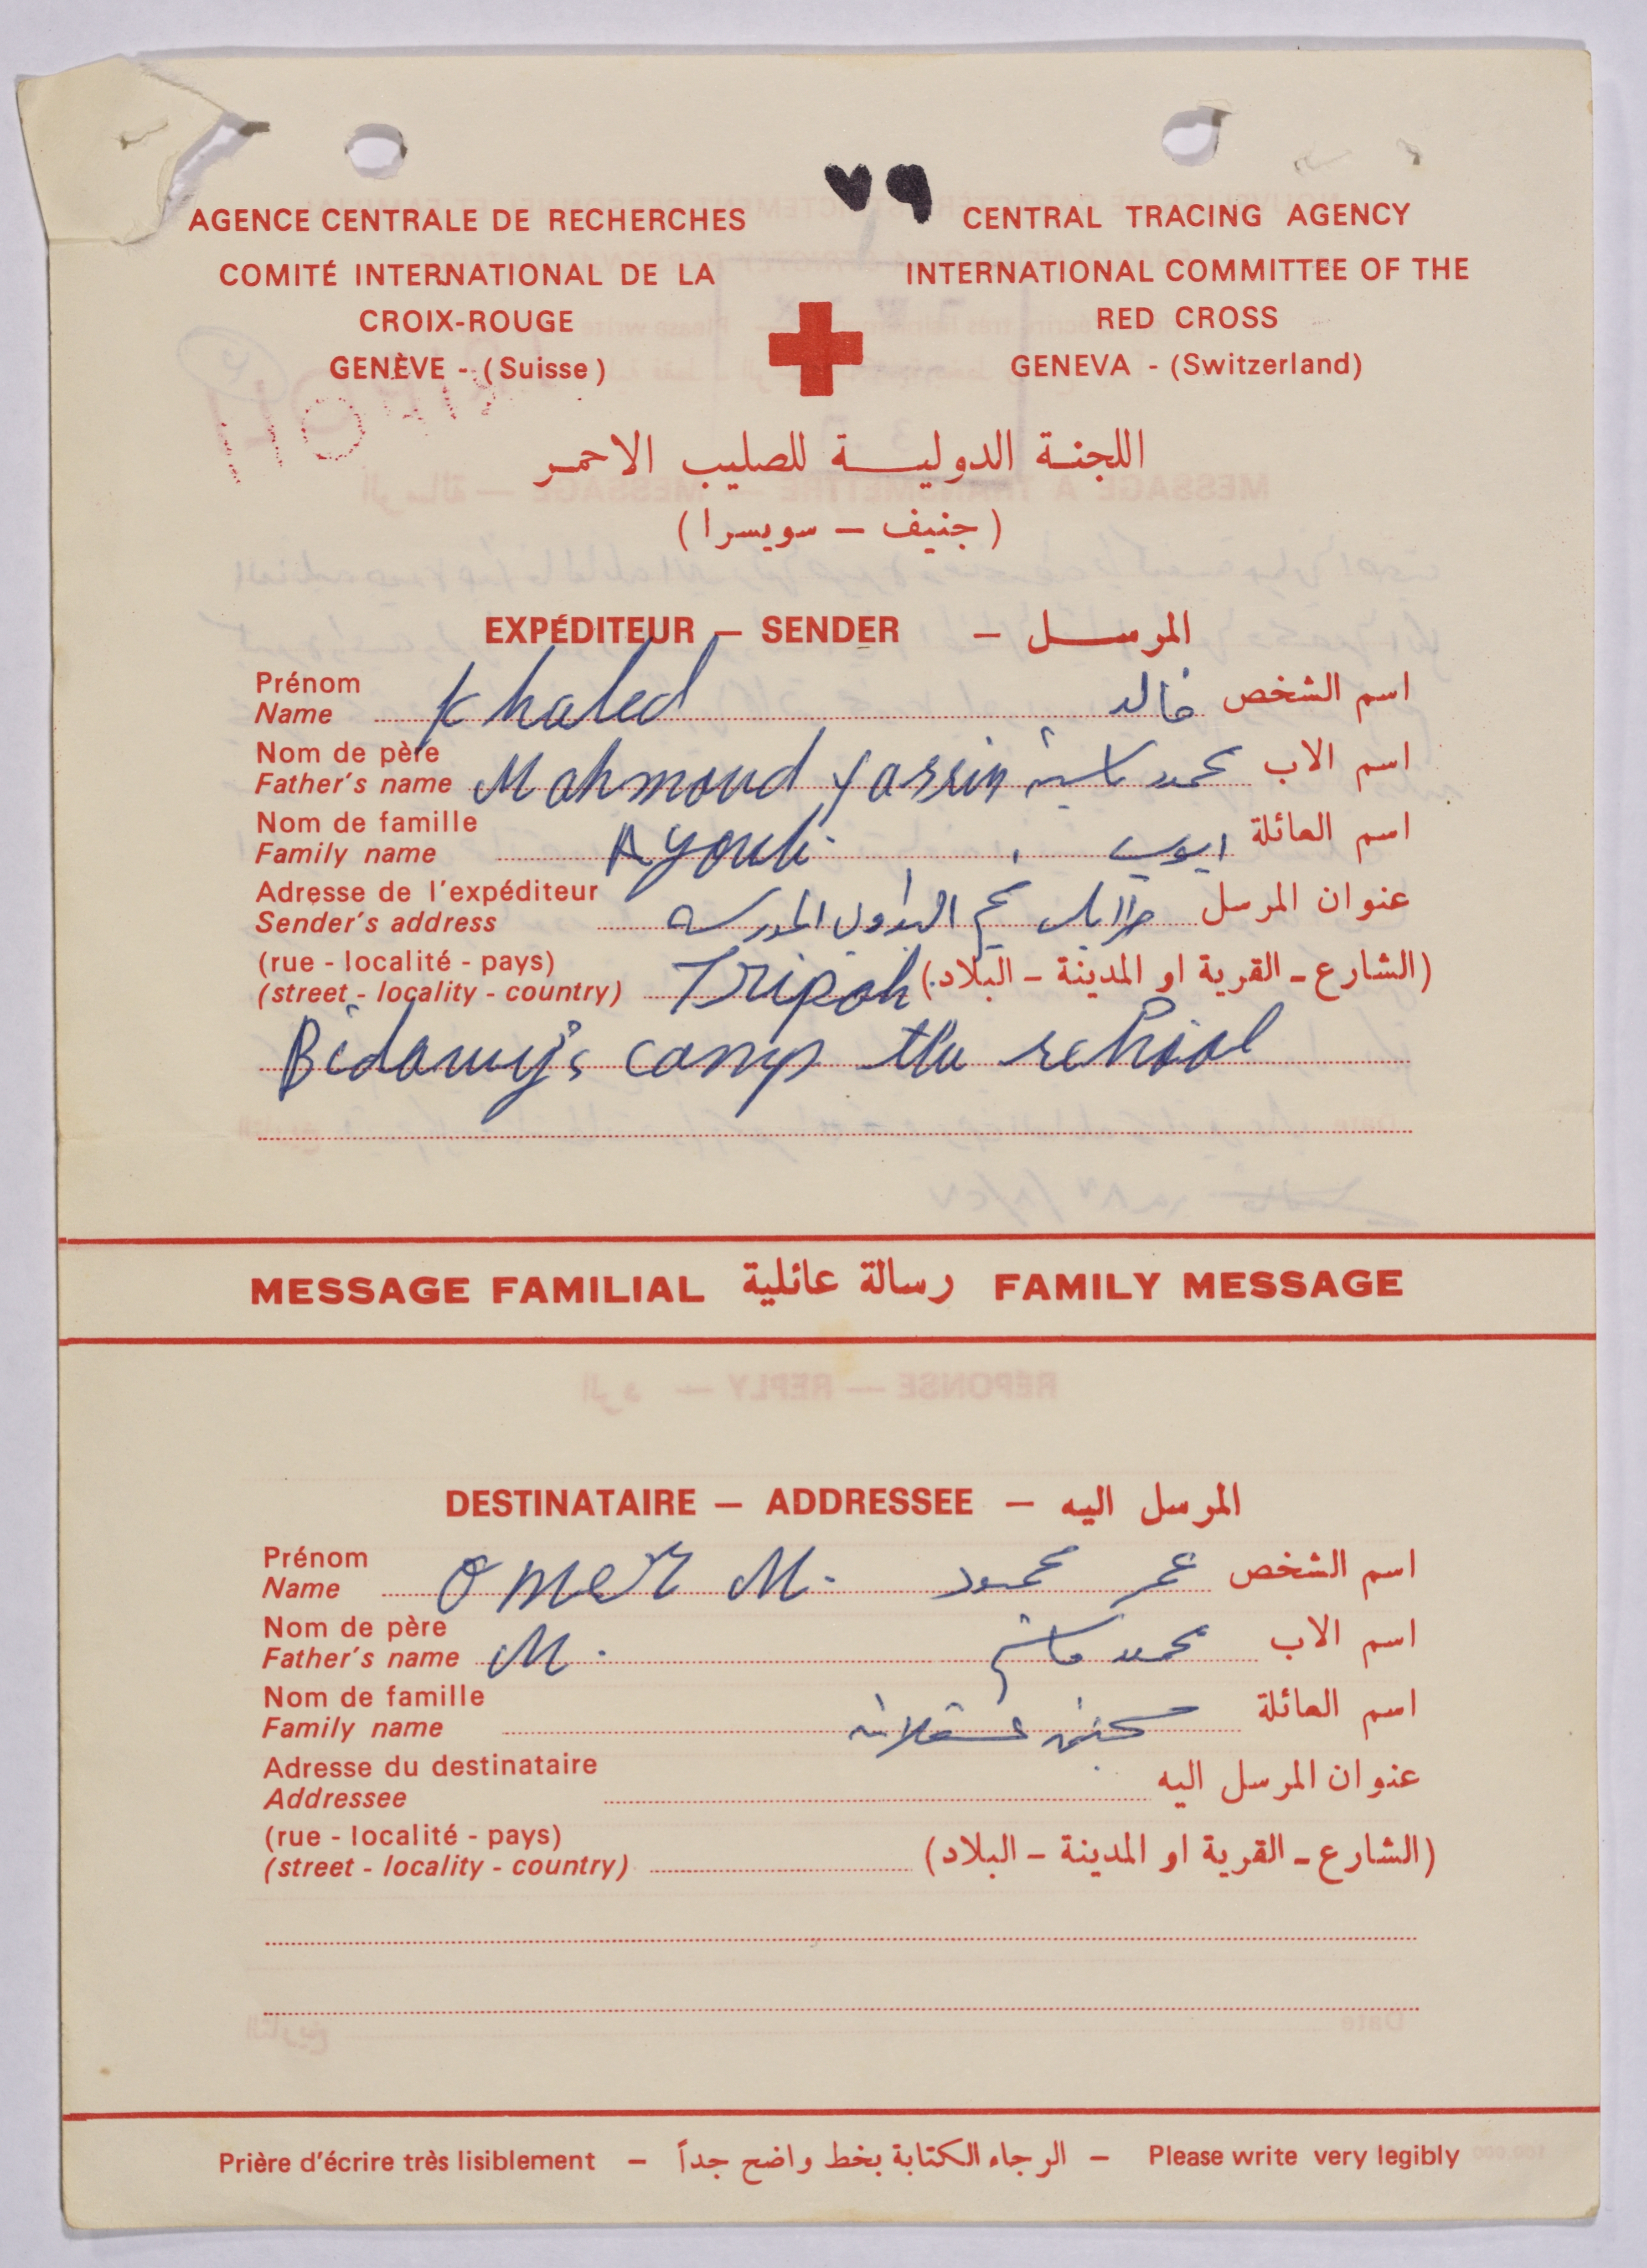 ٧٩
AGENCE CENTRALE DE RECHERCHES
COMITÉ INTERNATIONAL DE LA
CROIX-ROUGE
GENÈVE - (Suisse)
CENTRAL TRACING AGENCY
INTERNATIONAL COMMITTEE OF THE
RED CROSS
GENEVA - (Switzerland)
اللجنة الدولية للصليب الاحمر
(جنيف – سويسرا)
EXPÉDITEUR – SENDER – المرسل
Prénom
Name Khaled خالد اسم الشخص
Nom de père
Father's name Mahmoud Yassin محمود ياسين اسم الاب
Nom de famille
Family name Ayoub ايوب اسم العائلة
Adresse de l'expéditeur
Sender's address طرابلس مخيم البداوي المدرسة عنوان المرسل
(rue - localité - pays)
(street - locality - country) Tripoli (الشارع - القرية او المدينة - البلاد)
camp the school
MESSAGE FAMILIAL رسالة عائلية FAMILY MESSAGE
DESTINATAIRE – ADDRESSEE – المرسل اليه
Prénom
Name Omer M. عمر محمود اسم الشخص
Nom de père
Father's name M. محمود اسم الاب
Nom de famille
Family name اسم العائلة
Adresse du destinataire
Addressee عنوان المرسل اليه
(rue - localité - pays)
(street - locality - country) (الشارع - القرية او المدينة - البلاد)
Prière d'écrire très lisiblement – الرجاء الكتابة بخط واضح جداً – Please write very legibly